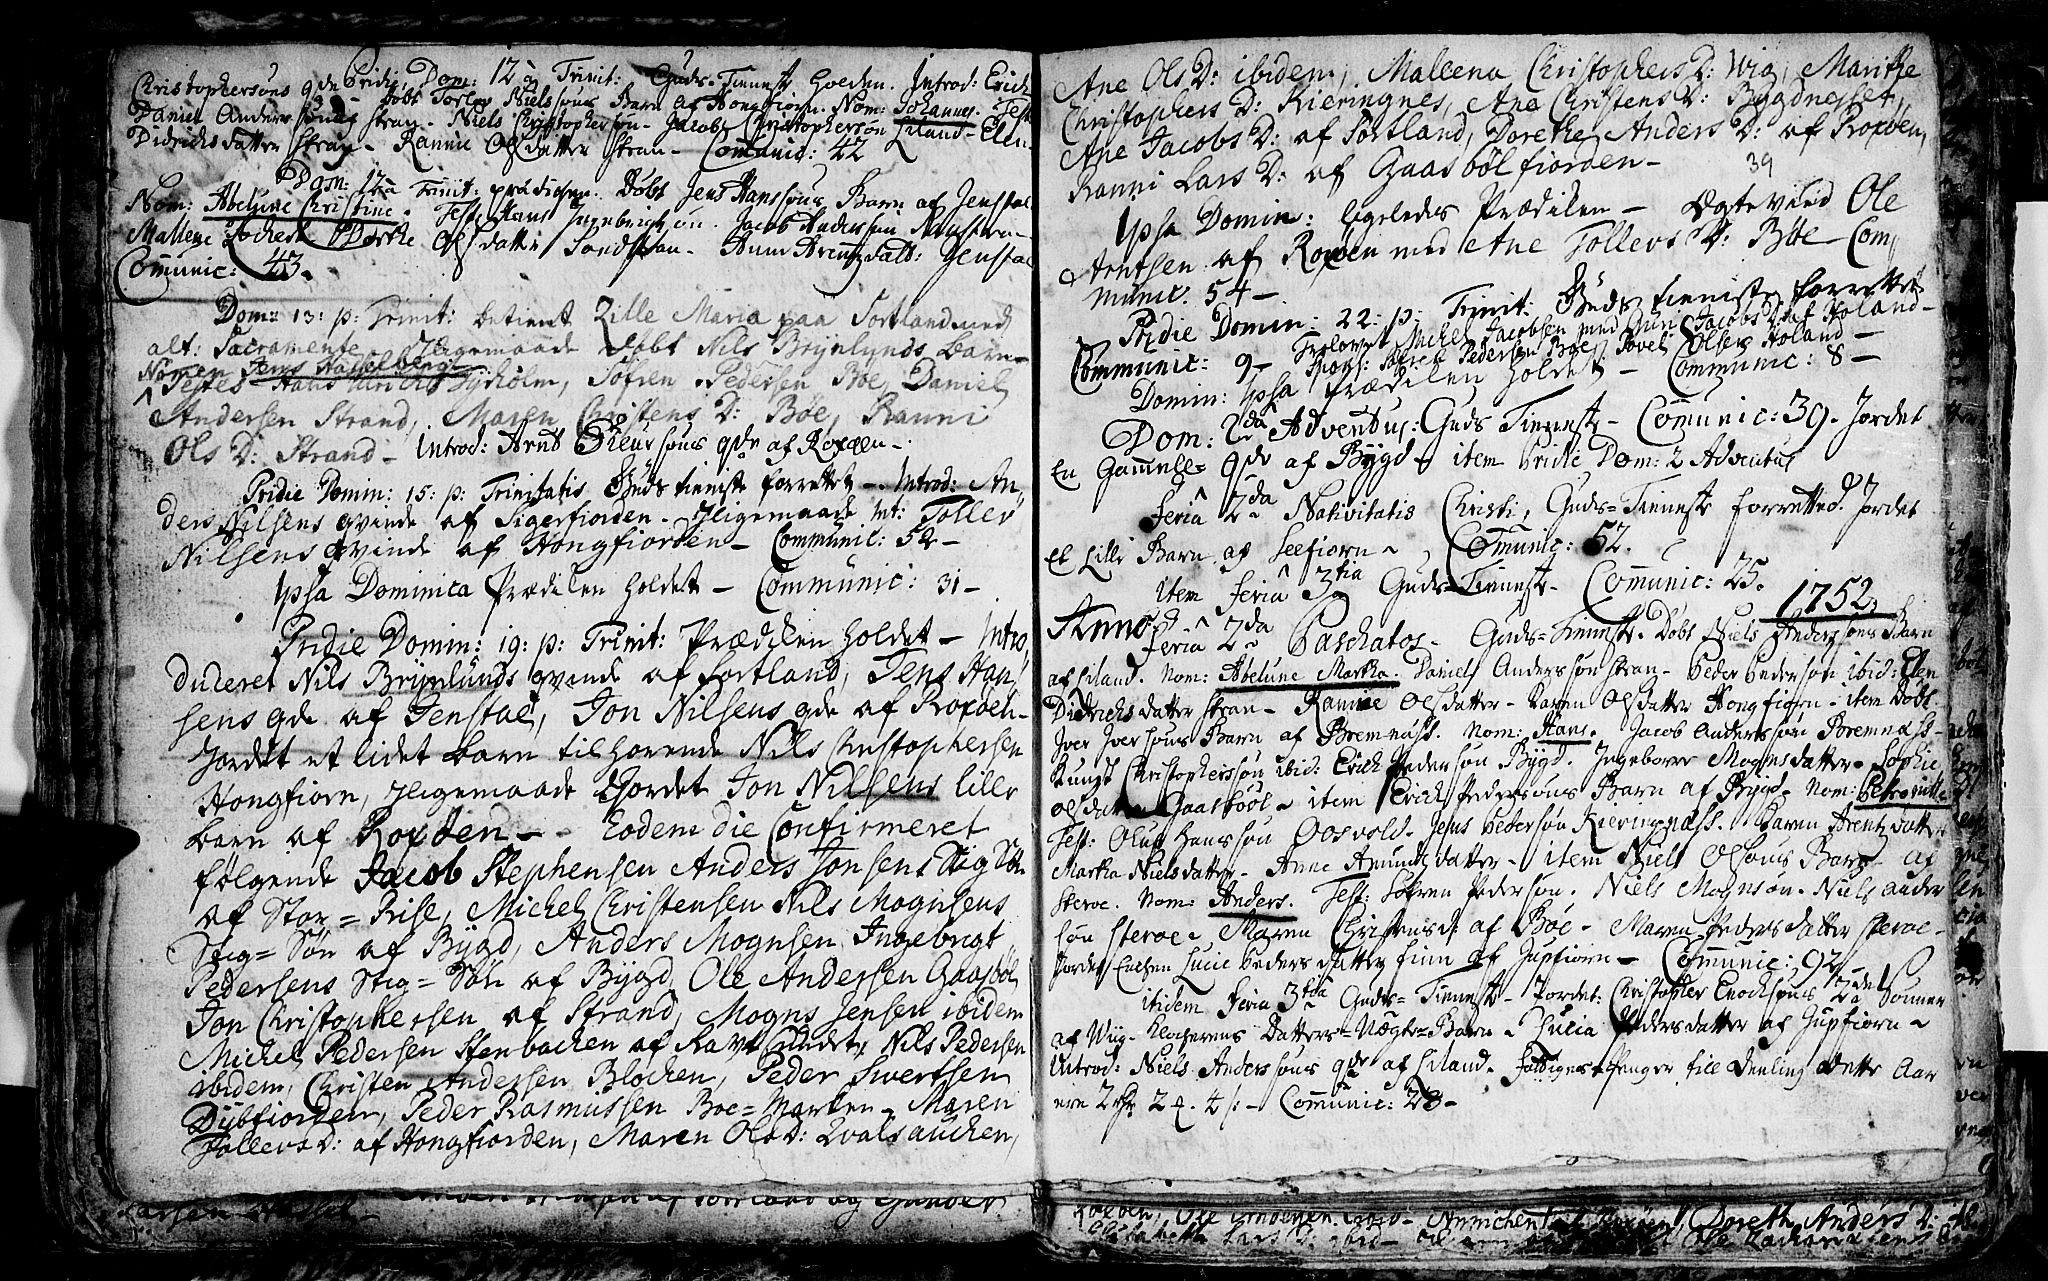 Pridie Dom: 12 p Trinit: Guds-Tienneste holden. Introd: Erich
Christophersøns qde døbt Torlev Nielssøns Barn af Hongfiorn. Nom: Johannes. Test:
Daniel Anderssøn Stran - Niels Christophersøn - Jacob Christophersøn Siland - Elen
Didrichsdatter Stran - Rannie Olsdatter Stran - Comunic: 42
Dom: 12 Trinit: prædichen. Døbt Jens Hanssøns Barn af Jenstal
Nom: Abelune Christine. Test: Hans Ingebrigtsøn. Jacob Anderssøn
Mallene Dorthe Olsdatter Sandstran - Anne Arentzdatt: Jenstal
Comunic: 43.
Dom: 13: p: Trinit: betient Zille Maria paa Sortland med
alt: Sacramente - Iligemaade døbt Nils Brynlunds barn -
Nomen Jens Hasselberg
Testes Hans Dyrholm, Søfren Pedersen Bøe, Daniel
Andersen Strand, Maren Christens D: Bøe, Ranni
Ols D: Strand - Introd: Arnt Sleurssøns qde af Roxøen -
Pridie Domin: 15: p: Trinitatis Guds tieniste forrettet - Introd: An,
ders Nilsens qvinde af Sigerfiorden - Iligemaade Int: Toller
Nilsens qvinde af Hongfiorden - Communic: 52 -
Ipsa Dominica Prædiken holdet - Communic: 31 -
Pridie Domin: 19: p: Trinit: Prædiken holdet - Intro,
duceret Nils Brynlunds qvinde af Sortland, Jens Han,
sens qde af Jenstal, Jon Nilsens qde af Roxøen -
Jordet et lidet barn tilhørende Nils Christophersen
Hongfiorn, Iligemaade Jordet Jon Nilsens lille
barn af Roxøen - - Eodem die Confirmeret
følgende Jacob Stephensen Anders Jonsens Stig Søn
af Stor = Rise, Michel Christensen Nils Mognsens
Stig = Søn af Bygd, Anders Mognsen Ingebrigt
Pedersens Stig = Søn af Bygd, Ole Andersen Gaasbøl
Jon Christophersen af Strand, Mogns Jensen ibidem
Michel Pedersen Stenbachen af Ravnsundet, Nils Pedersen
ibidem, Christen Andersen Blochen, Peder Swertsen
Dybfiorden, Peder Rasmussen Boe = Marken - Maren
Tollevs D: af Hongfiorden, Maren Ols D: Qvalsauchen,
Ane Ols D: ibidem, Malleena Christophers D: Wig, Marithe
Christophers D: Kieringnes, Ane Christens D: Bygdnesset,
Ane Jacobs D: af Sortland, Dorethe Anders D: af Roxøen,
Ranni Lars D: af Gaasbølfiorden -
39
Ipsa Domin: ligeledes Prædiken - Egteviid Ole
Arntsen af Roxøen med Ane Tollevs D: Bøe - Com,
munic. 54 -
Pridie Domin: 22: p: Trinit: Guds tieniste forrettet
Communic: 9 - Trolovet Michel Jacobsen med Juri Jacobs D: af Holand -
Spons: Peder Pedersen Boe, Povel Olsen Holand -
Domin: Ipsa Prædiken holdet - Communic: 8 -
Dom: 2da Adventus: Guds Tienneste - Comunic: 39. Jordet
En Gammell qde af Bygd - item Pridie Dom: 2 Adventus
Feria 2da Nativitatis Christi, Guds-Tienneste forretted. Jordet
et Lille Barn af Seefiorn - Comunic: 52.
item Feria 3tia Guds-Tienneste - Comunic: 25.
1752
Anno
Feria 2da Paschatos - Guds=Tienneste. Døbt Niels Anderssøns Barn
af Siland. Nom: Abelune Martha. Daniel Anderssøn Stran - Peder Pedersøn ibid: Elen
Didrichsdatter Stran - Rannie Olsdatter - Karen Olsdatter Hongfiorn - item Døbt
Iver Iverssøns Barn af Bremnæss. Nom: Hans. Jacob Anderssøn Bremnæss -
Christopherssøn ibid: Erich Pedersøn Bygd. Ingeborre Mognsdatter - Sophie
Olsdatter Gaasbøl - item Erich Pedersøns Barn af Bygd - Nom: Petronille
Test: Oluf Hanssøn Oosvold. Jens Pedersøn Kieringnæss. Karen Arentzdatter
Martha Nielsdatter - Anne Amundsdatter - item Niels Olsøns Barn af
Steroe. Nom: Anders. Test: Søfren Pedersøn. Niels Mognsøn. Niels Ander
søn Steroe - Maren Christensd: af Bøe - Maren Pedersdatter Steroe -
Jordet Enchen Lucie Pedersdatter finn af Jupfiorn - Comunic: 92 -
itidem Feria 3tia Guds-Tienneste - Jordet: Christopher Enochsøns 2de Sønner
af Wiig - Klocherens Datters-Uægte-Barn - Lucia Pedersdatter af Jupfiorn -
Introd: Niels Anderssøns qde af Siland. Fattiges Penger till Deeling dette Aar
ere 2 rdr 2 4 ß - Comunic: 28 -